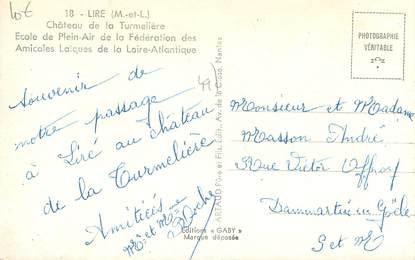 lot
18 - LIRE (M.-et-L.)
Château de la Turmelière
Ecole de Plein-Air de la Fédération des
Amicales Laïques de la Loire-Atlantique
PHOTOGRAPHIE
VÉRITABLE
49
Souvenir de
notre passage
à Liré au château
de la Turmelière
Amitiés
Mr et Mme
Roche
ARTAUD Père et Fils, Edit., Av. de la Close, Nantes
Editions « GABY »
Marque déposée
Monsieur et Madame
Masson André
Rue Victor Offroy
Dammartin en Goële
S et M